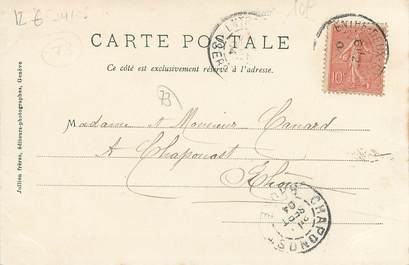 CARTE POSTALE
Ce côté est exclusivement réservé à l'adresse.
10
73
Madame et Monsieur Canard
A Chaponost
Rhône
CHAPONOST
04
Jullien frères, éditeurs-photographes, Genève